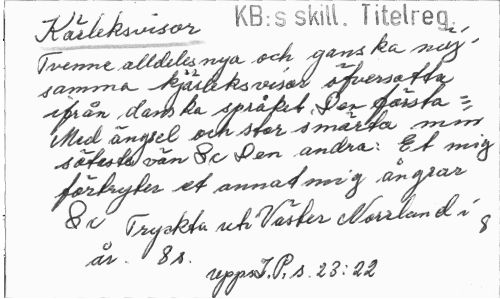 Kärleksvisor
KB:s skill. Titelreg.
Tvenne alldeles nya och ganska nöj-
samma kjärleksvisor öfversatta
ifrån danska språket. Den första =
Med ängsel och stor smärta min
sötesta vän &c Den andra: Et mig
förtryter et annat mig ångrar
&c Tryckta uti Väster Norrland i
år. 8 s. 8
Upps. I.P. s. 23:22